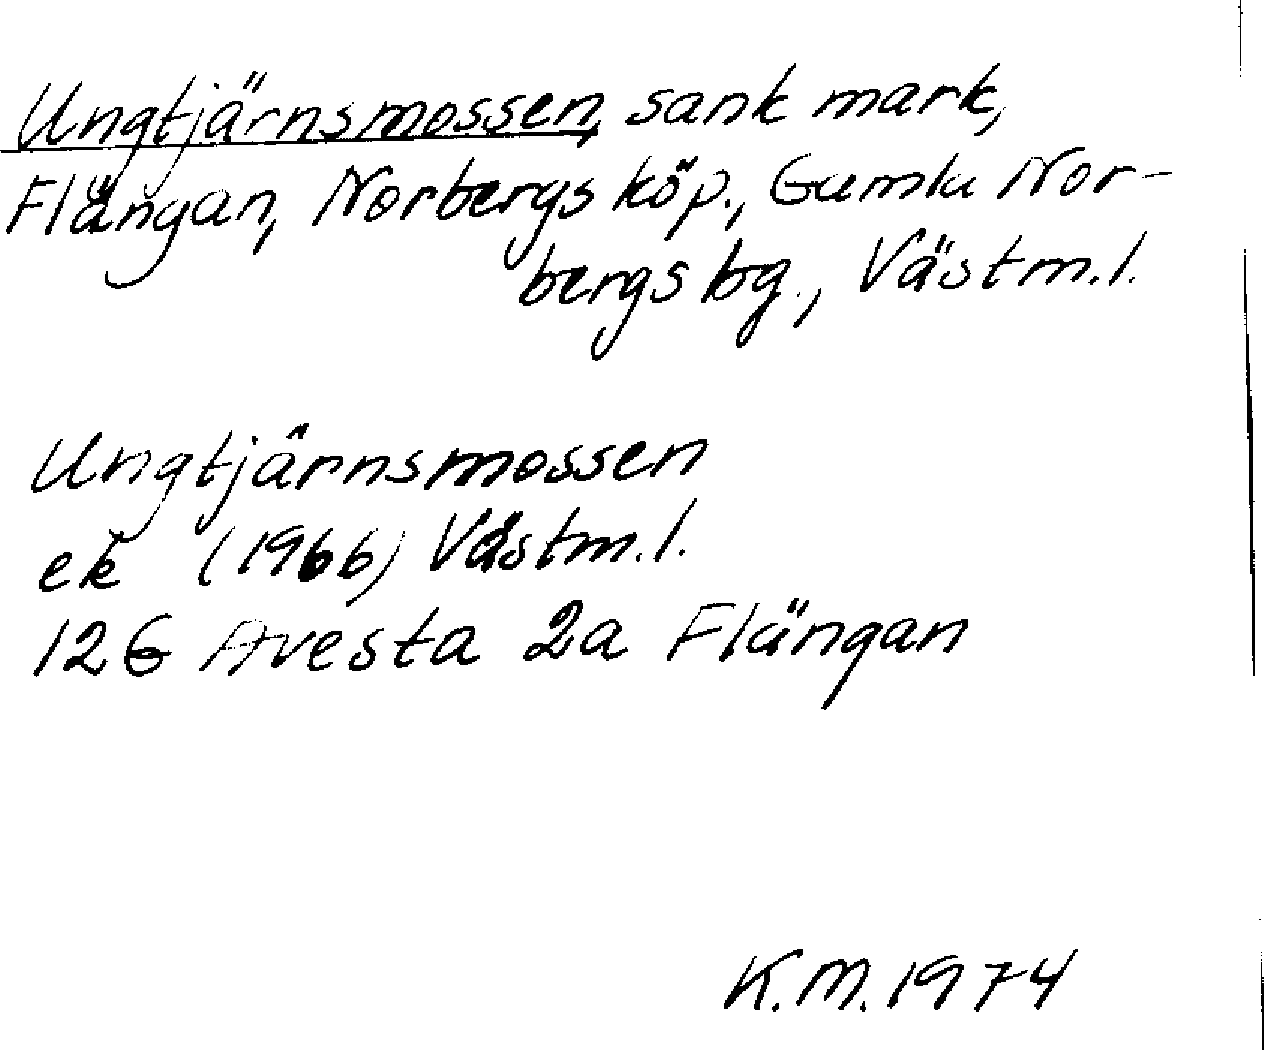 Ungtjärnsmossen, sank mark,
Flängan, Norbergs köp., Gamla Nor-
bergs bg., Västm.l.
Ungtjärnsmossen
ek (1966) Västm.l.
12G Avesta 2a Flängan
K.M. 1974